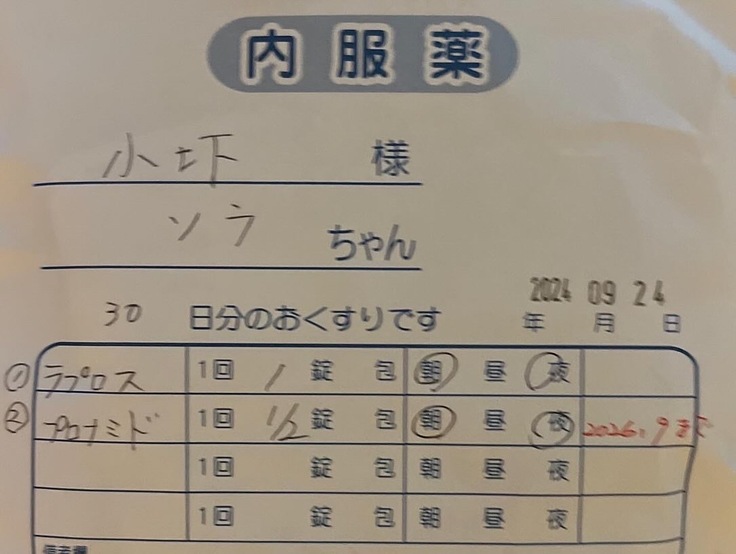 内服薬
小圷 様
ソラ ちゃん
2024 09 24
30 日分のおくすりです 年 月 日
① ラプロス 1回 1 錠 包 朝 昼 夜
② プロナミド 1回 1/2 錠 包 朝 昼 夜 2026.9まで
1回 錠 包 朝 昼 夜
1回 錠 包 朝 昼 夜